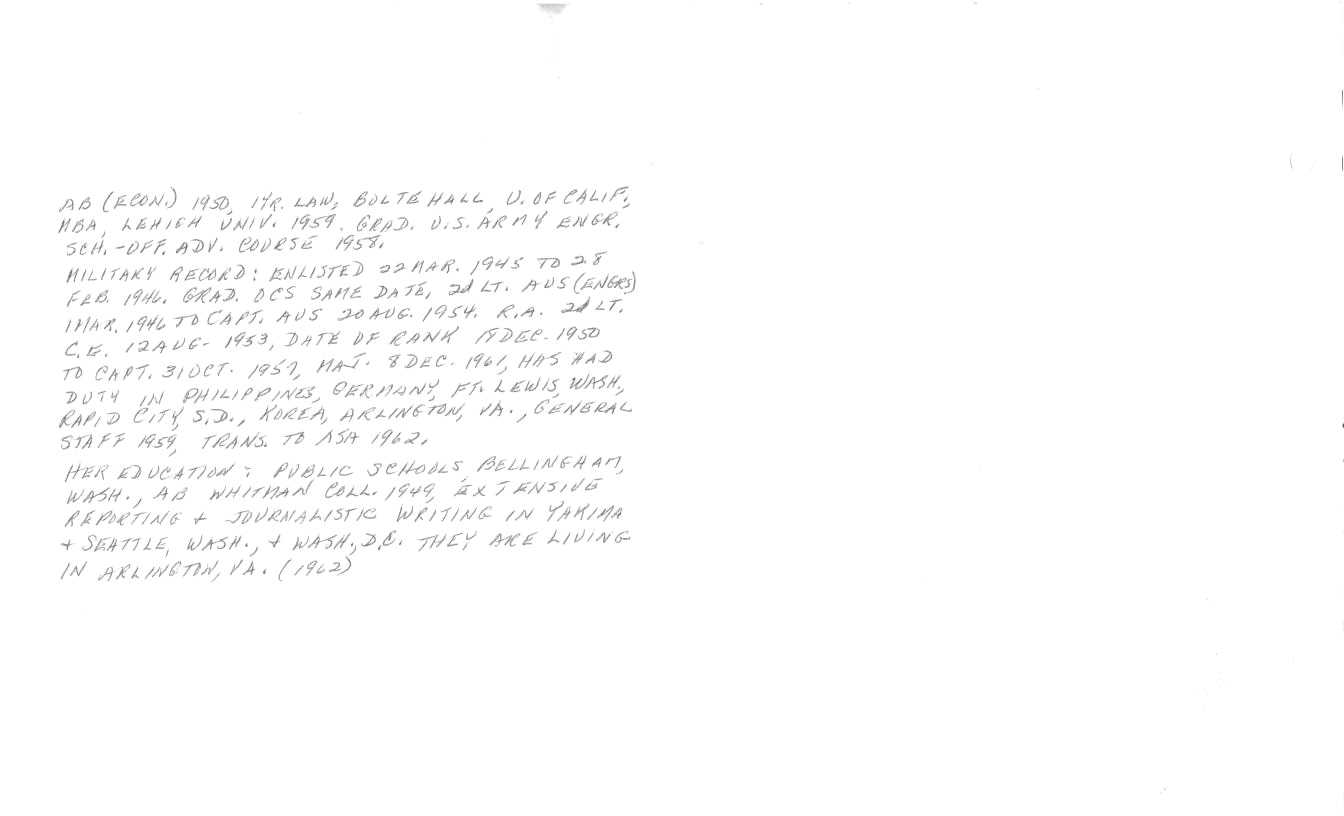 AB (ECON.) 1950, 1 YR. LAW, BOLTE HALL, U. OF CALIF.,
MBA, LEHIGH UNIV. 1959. GRAD. U.S. ARMY ENGR.
SCH. - OFF. ADV. COURSE 1958.
MILITARY RECORD: ENLISTED 22 MAR. 1945 TO 28
FEB. 1946. GRAD. OCS SAME DATE, 2d LT. AUS (ENGRS)
1 MAR. 1946 TO CAPT. AUS 20 AUG. 1954. R.A. 2d LT.
C.E. 12 AUG - 1953, DATE OF RANK DEC. 1950
TO CAPT. 31 OCT. 1957, MAJ. 8 DEC. 1961, HAS HAD
DUTY IN PHILIPPINES, GERMANY, FT. LEWIS, WASH.,
RAPID CITY, S.D., KOREA, ARLINGTON, VA., GENERAL
STAFF 1959, TRANS. TO ASA 1962.
HER EDUCATION: PUBLIC SCHOOLS, BELLINGHAM,
WASH., AB WHITMAN COLL. 1949, EXTENSIVE
REPORTING + JOURNALISTIC WRITING IN YAKIMA
+ SEATTLE, WASH., + WASH., D.C. THEY ARE LIVING
IN ARLINGTON, VA. (1962)